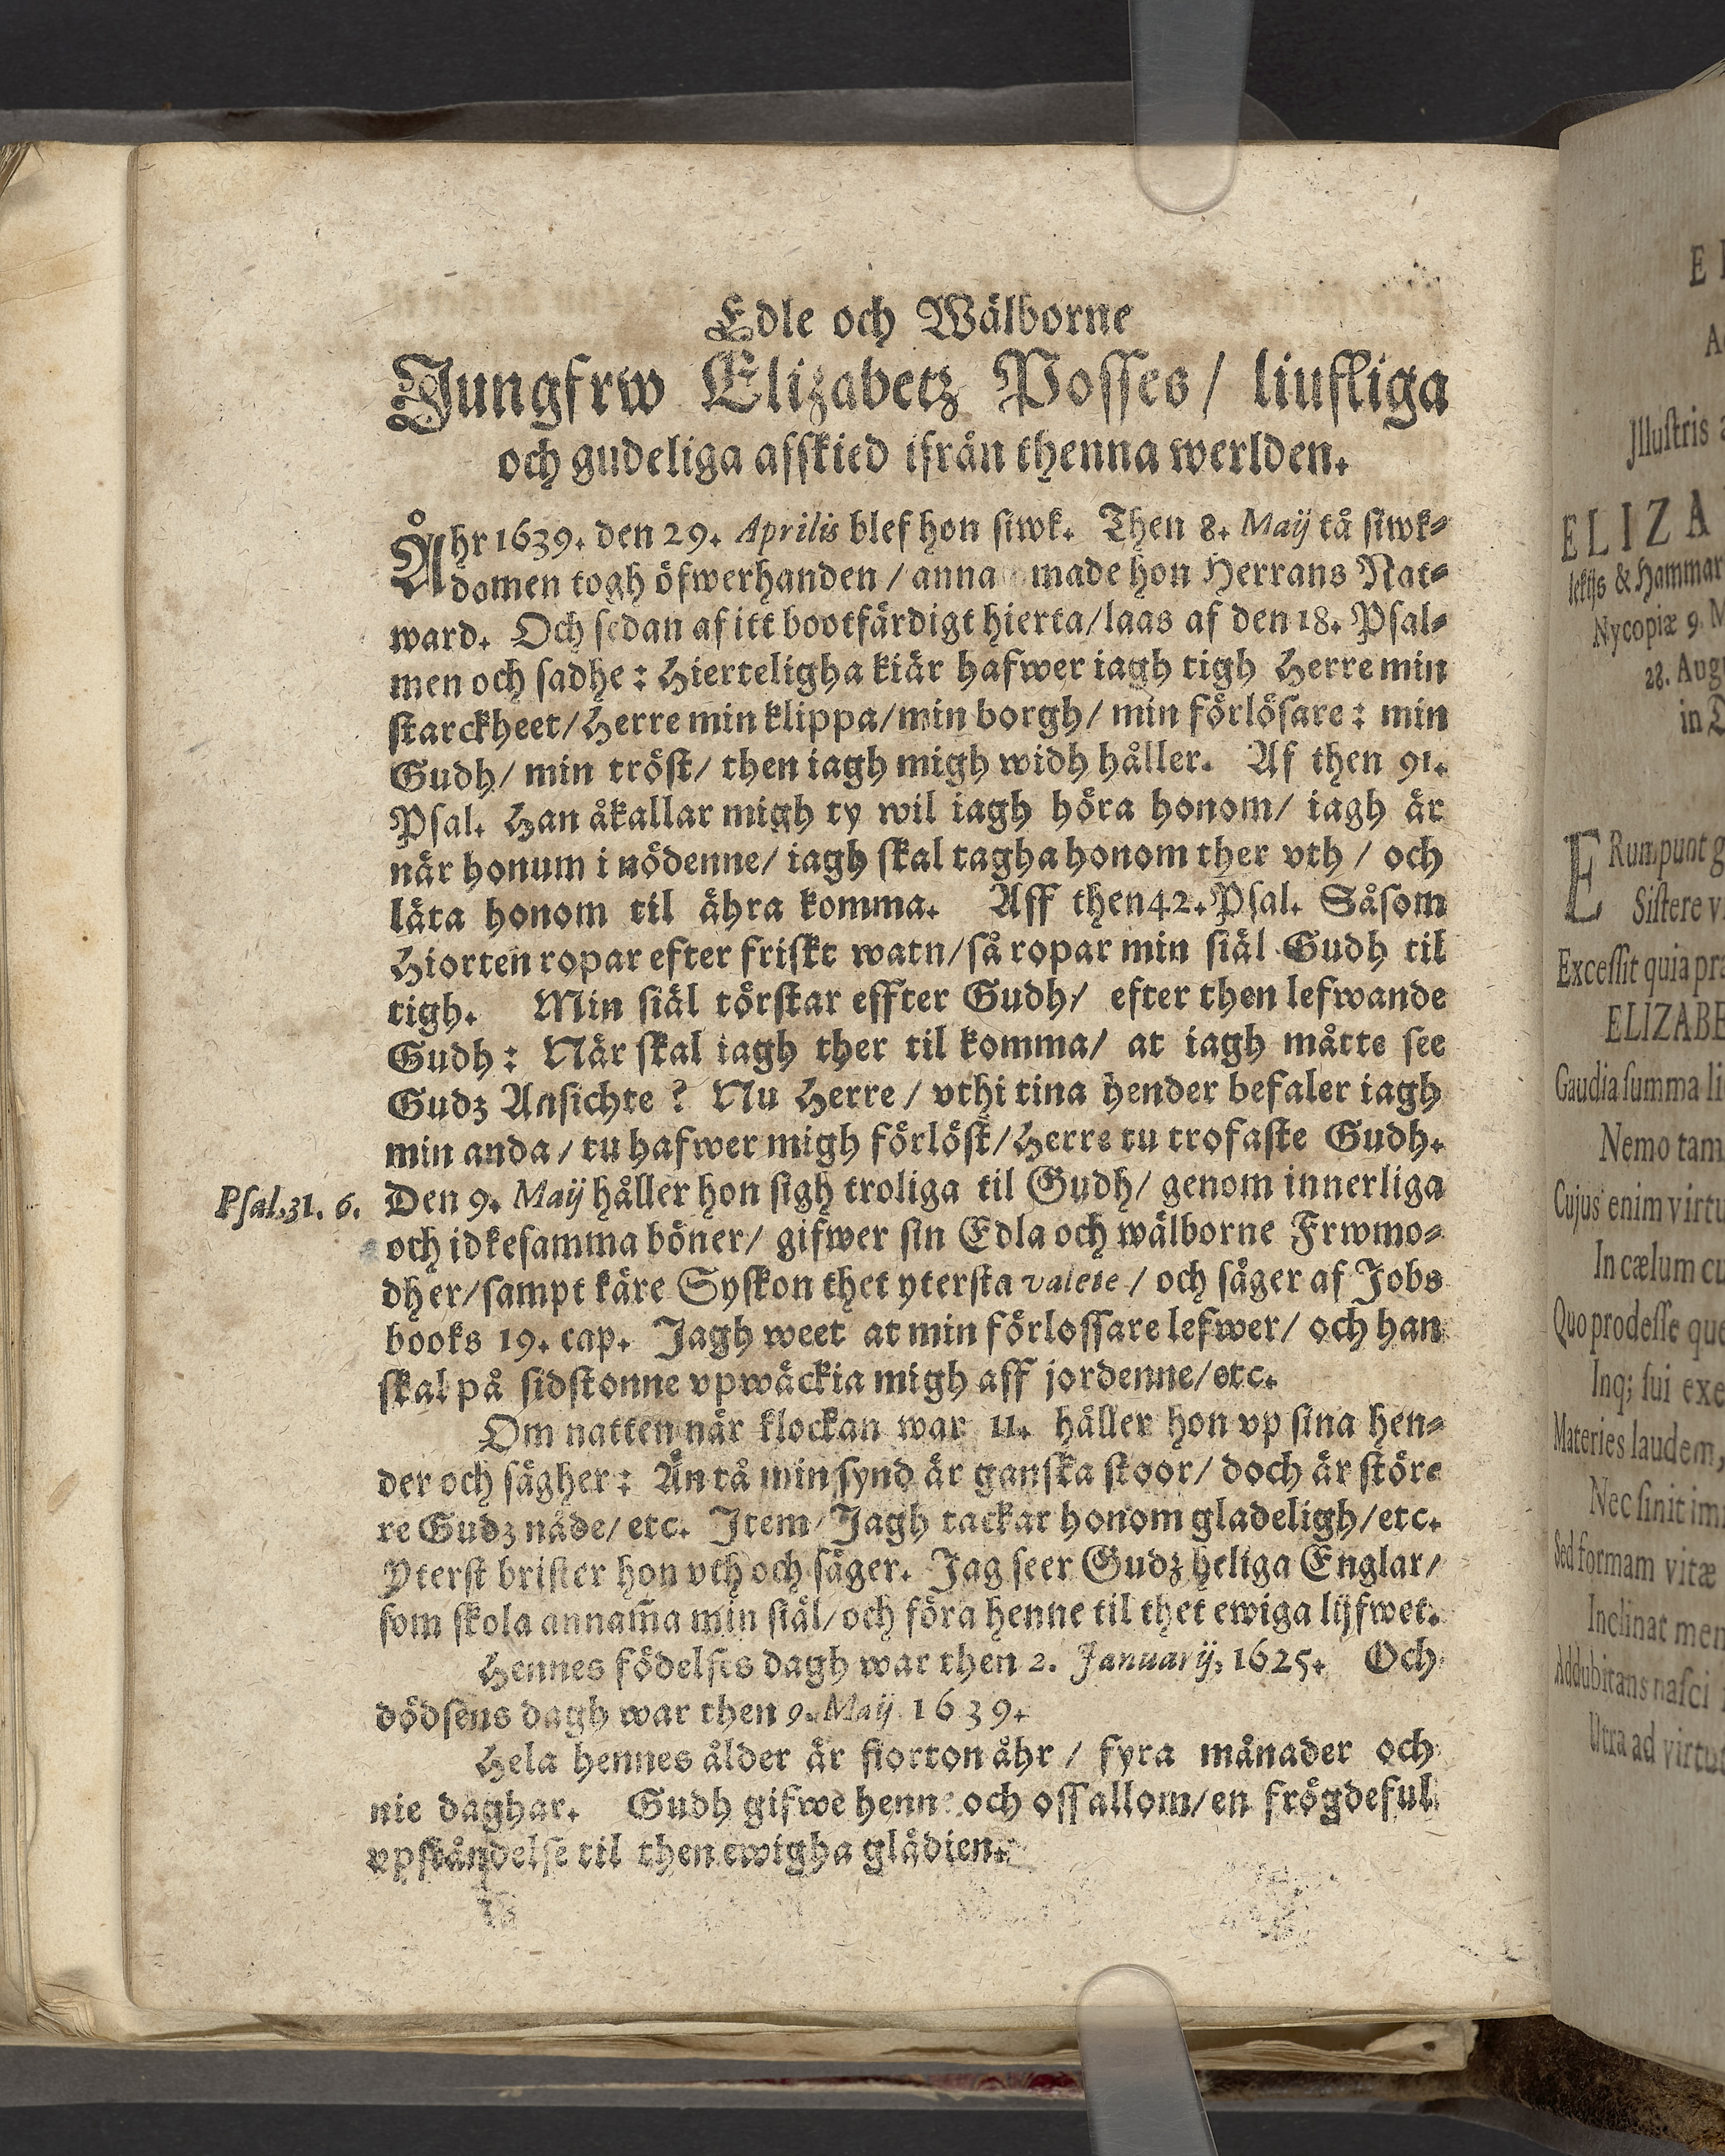 Edle och Wälborne
Jungfrw Elizabetz Posses/ liufliga
och gudeliga afskied ifrån thenna werlden.
Åhr 1639. den 29. Aprilis blef hon siwk. Then 8. Maij tå siwk-
domen togh öfwerhanden / anna made hon Herrans Nat-
ward. Och sedan af itt bootfärdigt hierta/laas af den 18. Psal-
men och sadhe: Hierteligha kiär hafwer iagh tigh Herre min
starckheet/Herre min klippa/min borgh/ min förlösare: min
Gudh/ min tröst/ then iagh migh widh håller. Af then 91.
Psal. Han åkallar migh ty wil iagh höra honom/ iagh är
när honum i nödenne/ iagh skal tagha honom ther vth / och
läta honom til ähra komma. Aff then 42. Psal. Såsom
Hiorten ropar efter friskt watn/så ropar min siäl Gudh til
tigh. Min siäl törstar effter Gudh/ efter then lefwande
Gudh: När skal iagh ther til komma/ at iagh måtte see
Gudz Ansichte? Nu Herre / vthi tina hender befaler iagh
min anda/ tu hafwer migh förlöst/Herre tu trofaste Gudh.
Psal.31. 6. Den 9. Maij håller hon sigh troliga til Gudh/ genom innerliga
och idkesamma böner/ gifwer sin Edla och wälborne Frwmo-
dher/sampt käre Syskon thet ytersta valete / och säger af Jobs
books 19. cap. Jagh weet at min förlossare lefwer/ och han
skal på sidstonne vpwäckia migh aff jordenne/etc.
Om natten når klockan war 11. håller hon vp sina hen-
der och sägher: Än tå min synd är ganska stoor/ doch är störe
re Gudz nåde/ etc. Item/ Jagh tackar honom gladeligh/etc.
Yterst brister hon vth och säger. Jag seer Gudz heliga Englar/
som skola annam̃a min siäl/och föra henne til thet ewiga lijfwet.
Hennes födelses dagh war then 2. Januarij, 1625. Och
dödsens dagh war then 9. Maij 1639.
Hela hennes ålder är fiorton åhr / fyra månader och
nie daghar. Gudh gifwe henne och oss allom/en frögdeful
vpståndelse til then ewigha glädien.
E
Jllustris
ELIZA
& Hammar
Nycopiæ 9. M
28. Aug
in
ERumpunt g
Sistere v
Excessit quia præ
ELIZABE
Gaudia summa li
Nemo tam
Cujus enim virtu
In cælum cu
Quo prodesse que
Inq; sui exe
Materies laudem,
Nec sinit im
Sed formam vitæ
Inclinat men
Addubitans nasci
Utra ad virtu